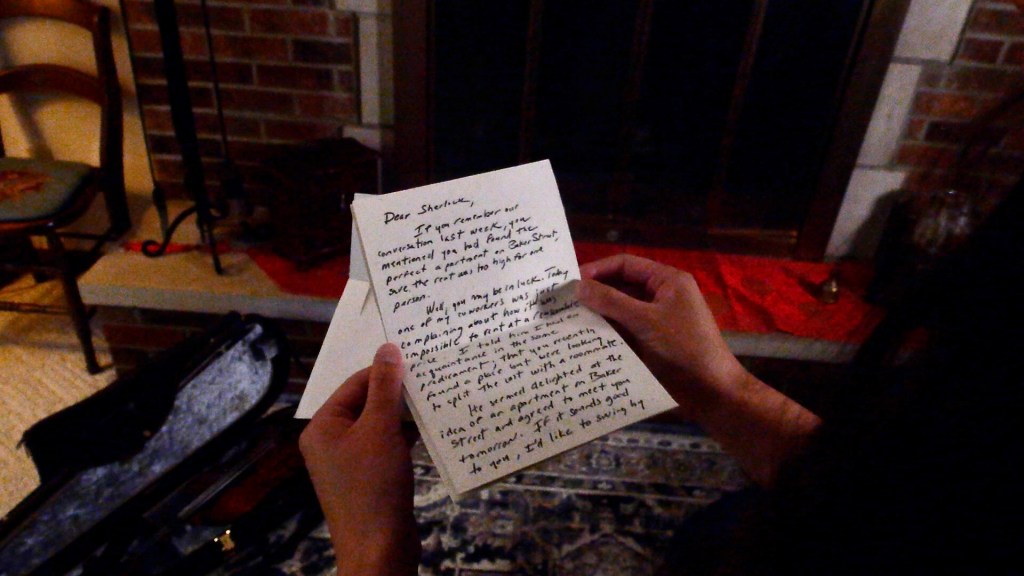 Dear Sherlock,
If you remember our
conversation last week, you
mentioned you had found the
perfect apartment on Baker Street,
sure the rent was too high for one
person.
Well, you may be in luck. Today
one of my coworkers was just
complaining about how it was
impossible to rent at a reasonable
I told him I had an
acquaintance in the same
predicament, that you recently
found a place but were looking
to split the cost with a roommate
He seemed delighted at the
idea of an apartment on Baker
Street and agreed to meet you
tomorrow. If it sounds good
to you, I'd like to swing by